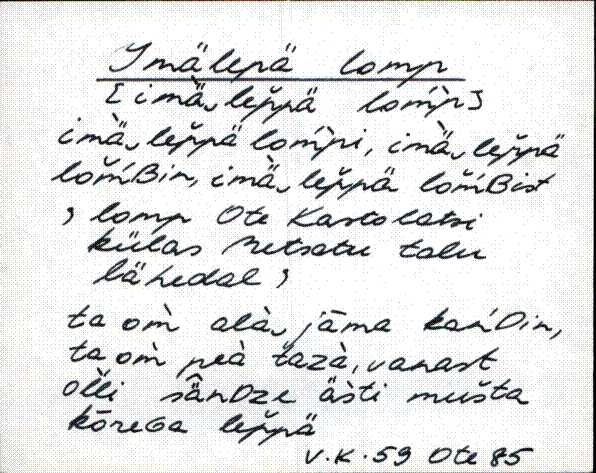 Imälepä lomp
[imä‿lep̆pä lomp]
imä‿lep̆pä lompi, imä‿lep̆pä
lom̆Bin, imä‿lep̆pä lom̆Bist
, lomp Ote Kastolatsi
külas Metsatu talu
lähedal ,
ta om̀ alà‿jāma kańDin,
ta om̀ peà tazà, vanast
oĺli sânDze äs̀ti musta
kōreGa lep̆pä
V.K. 59 Ote 85